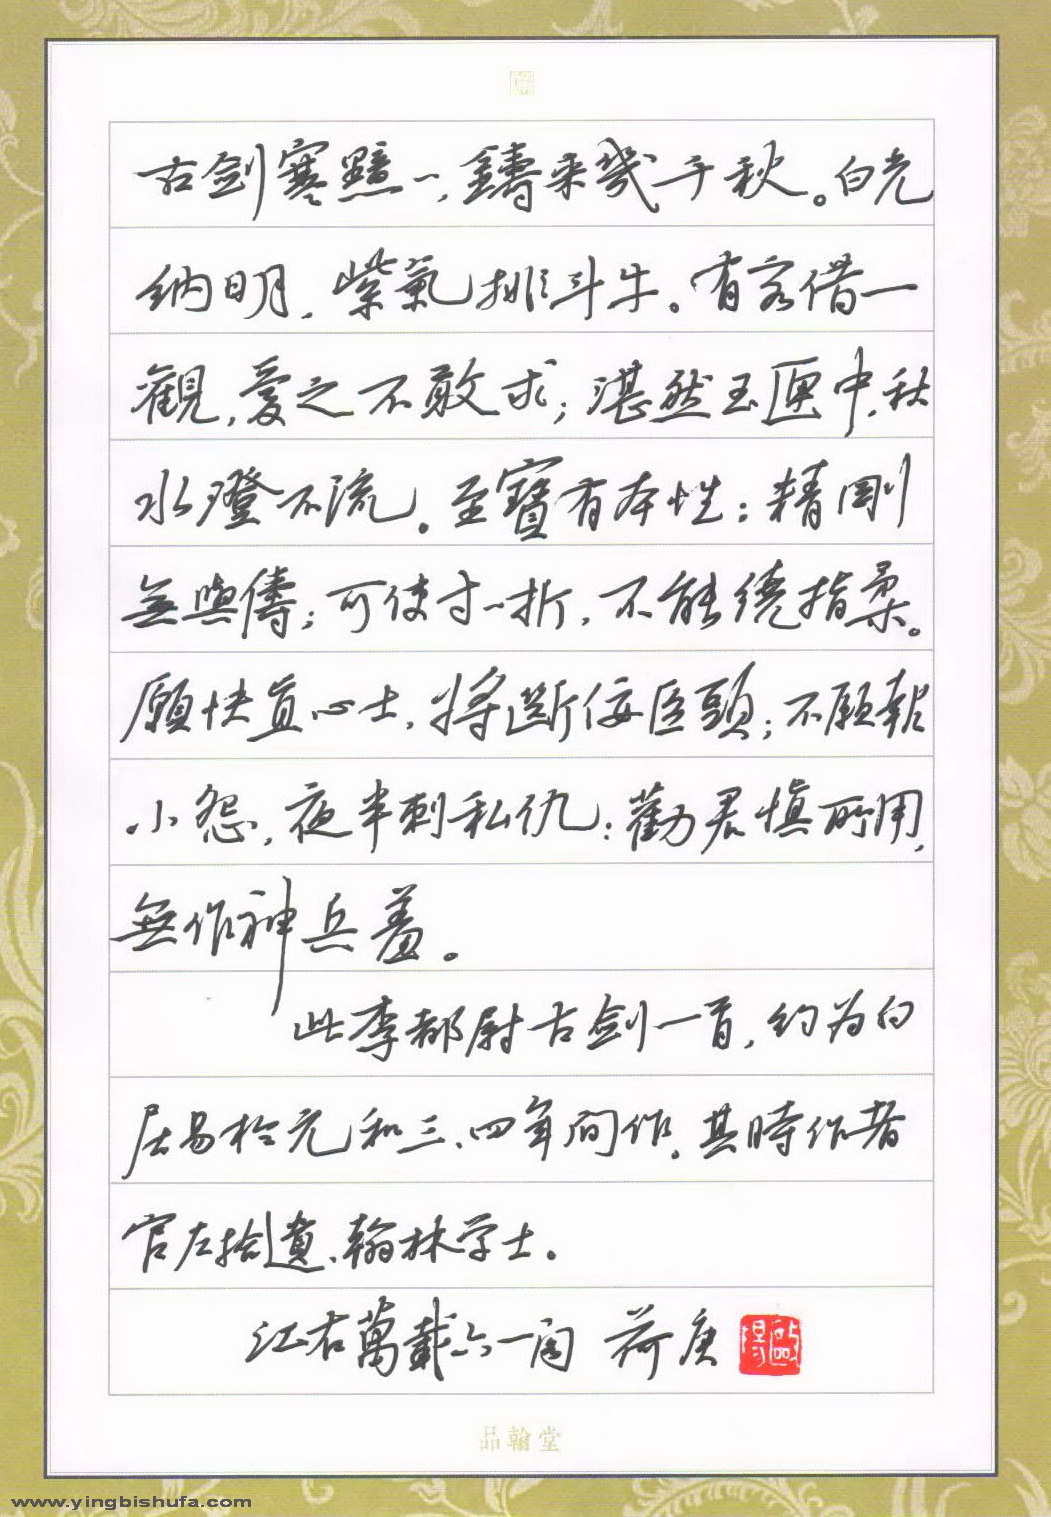 古劍寒黯一，鑄来幾千秋。白光
納日月，紫氣排斗牛。有客借一
觀，愛之不敢求；湛然玉匣中，秋
水澄不流。至寶有本性：精剛
無與儔；可使寸一折，不能繞指柔。
願快直心士，將斷佞臣頭；不願報
小怨，夜半刺私仇：勸君慎所用，
無作神兵羞。
此李都尉古劍一首，約为白
居易於元和三、四年间作。其時作者
官左拾遺、翰林学士。
江右萬載六一阁 荷庚
品翰堂
www.yingbishufa.com